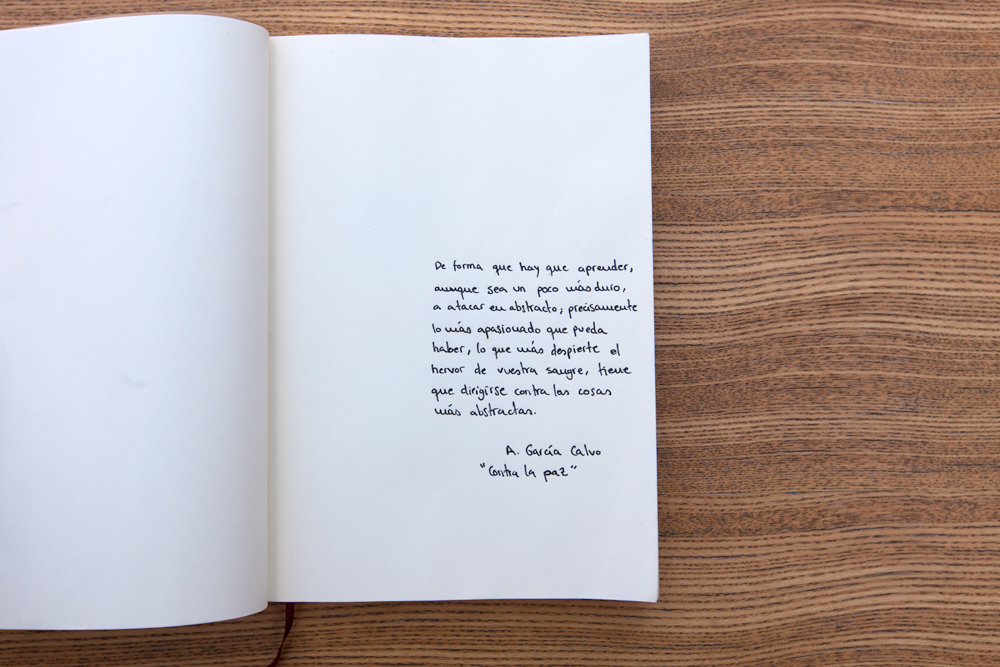 De forma que hay que aprender,
aunque sea un poco más duro,
a atacar en abstracto; precisamente
lo más apasionado que pueda
haber, lo que más despierte el
hervor de vuestra sangre, tiene
que dirigirse contra las cosas
más abstractas.
A. García Calvo
"Contra la paz"